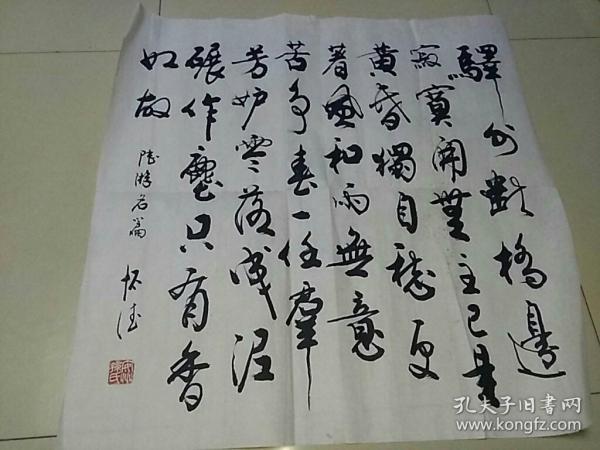 驛外斷橋邊
寂寞開無主已是
黃昏獨自愁更
著風和雨無意
苦爭春一任羣
芳妒零落成泥
碾作塵只有香
如故
陸游名篇
怀德
孔夫子旧书网
www.kongfz.com